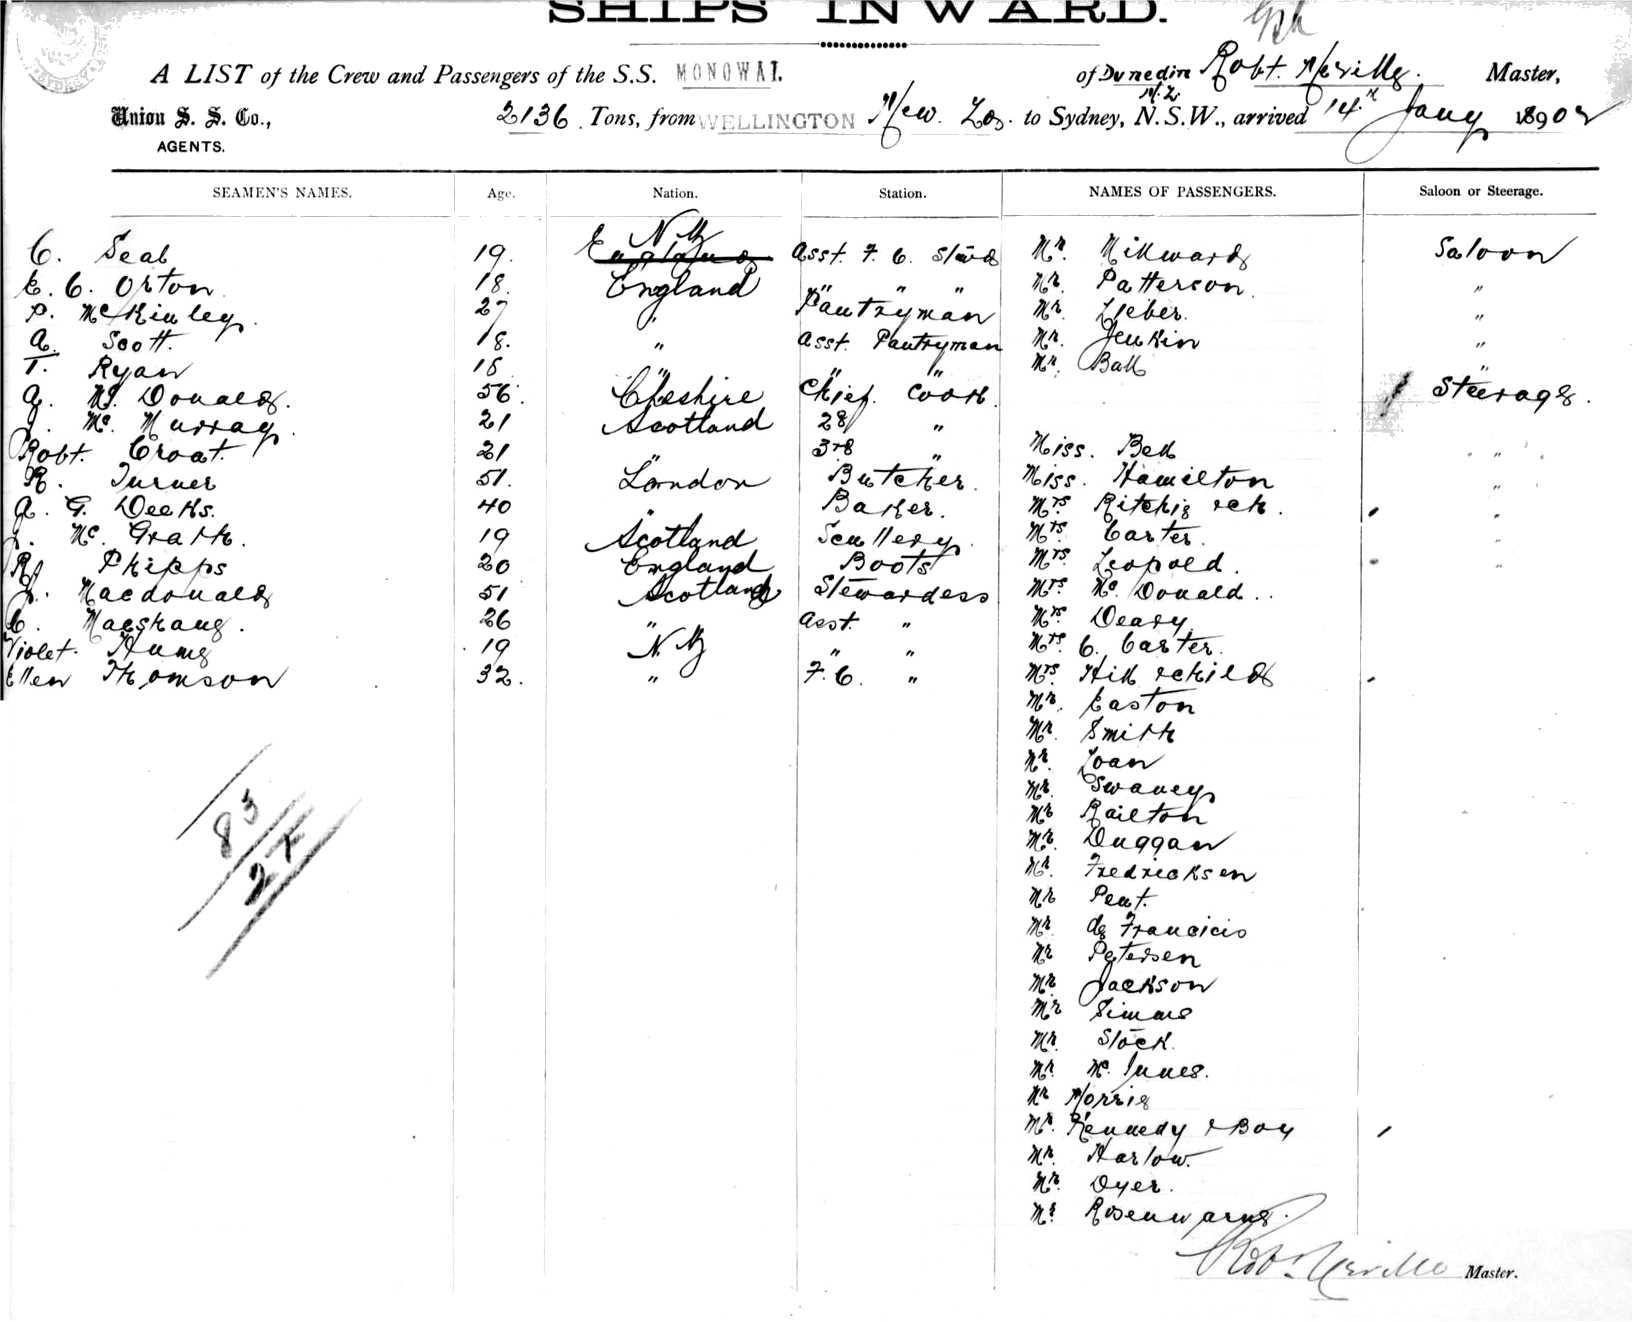 SHIPS INWARD.
A LIST of the Crew and Passengers of the S.S. MONOWAI. of Dunedin N.Z. Robt. Neville. Master,
Union S. S. Co., 2136 Tons, from WELLINGTON New Zea. to Sydney, N.S.W., arrived 14th Jany 1890 2
AGENTS.
SEAMEN'S NAMES. Age. Nation. Station. NAMES OF PASSENGERS. Saloon or Steerage.
C. Seal 19. England N Z Asst. F. C. Stewd Mr. Millward Saloon
E. C. Orton 18. England " " " Mr. Patterson "
P. McKinley. 27 " Pantryman Mr. Lieber. "
A. Scott. 18. " Asst. Pantryman Mr. Jenkin "
T. Ryan 18 " " " Mr. Ball "
A. Mc. Donald. 56. Cheshire Chief Cook. Steerage.
J. Mc. Murray. 21 Scotland 2d "
Robt. Croat. 21 " 3rd " Miss. Bell "
R. Turner 51. London Butcher. Miss. Hamilton "
A. G. Deeks. 40 " Baker. Mrs Ritchie & ch. "
J. Mc. Grath. 19 Scotland Scullery. Mrs. Carter. "
R. Phipps 20 England Boots Mrs. Leopold. "
J. Macdonald 51 Scotland Stewardess Mrs. Mc. Donald.
C. 26 " Asst. " Mrs. Deary
Violet. Hume 19 N Z " " Mrs. C. Carter.
Ellen Thomson 32. " F. C. " Mrs. Hill & child
Mr. Easton
Mr. Smith
Mr. Loan
Mr. Swaney
Mr Railton
Mr. Duggan
Mr. Fredricksen
Mr Pent.
Mr. de Francicis
Mr Petersen
Mr Jackson
Mr Simms
Mr. Stock.
Mr. Mc. Innes.
Mr Norris
Mr. Kennedy & Boy
Mr. Harlow.
Mr. Dyer.
Mr. Rosenwarne.
83
27
Robt Neville Master.